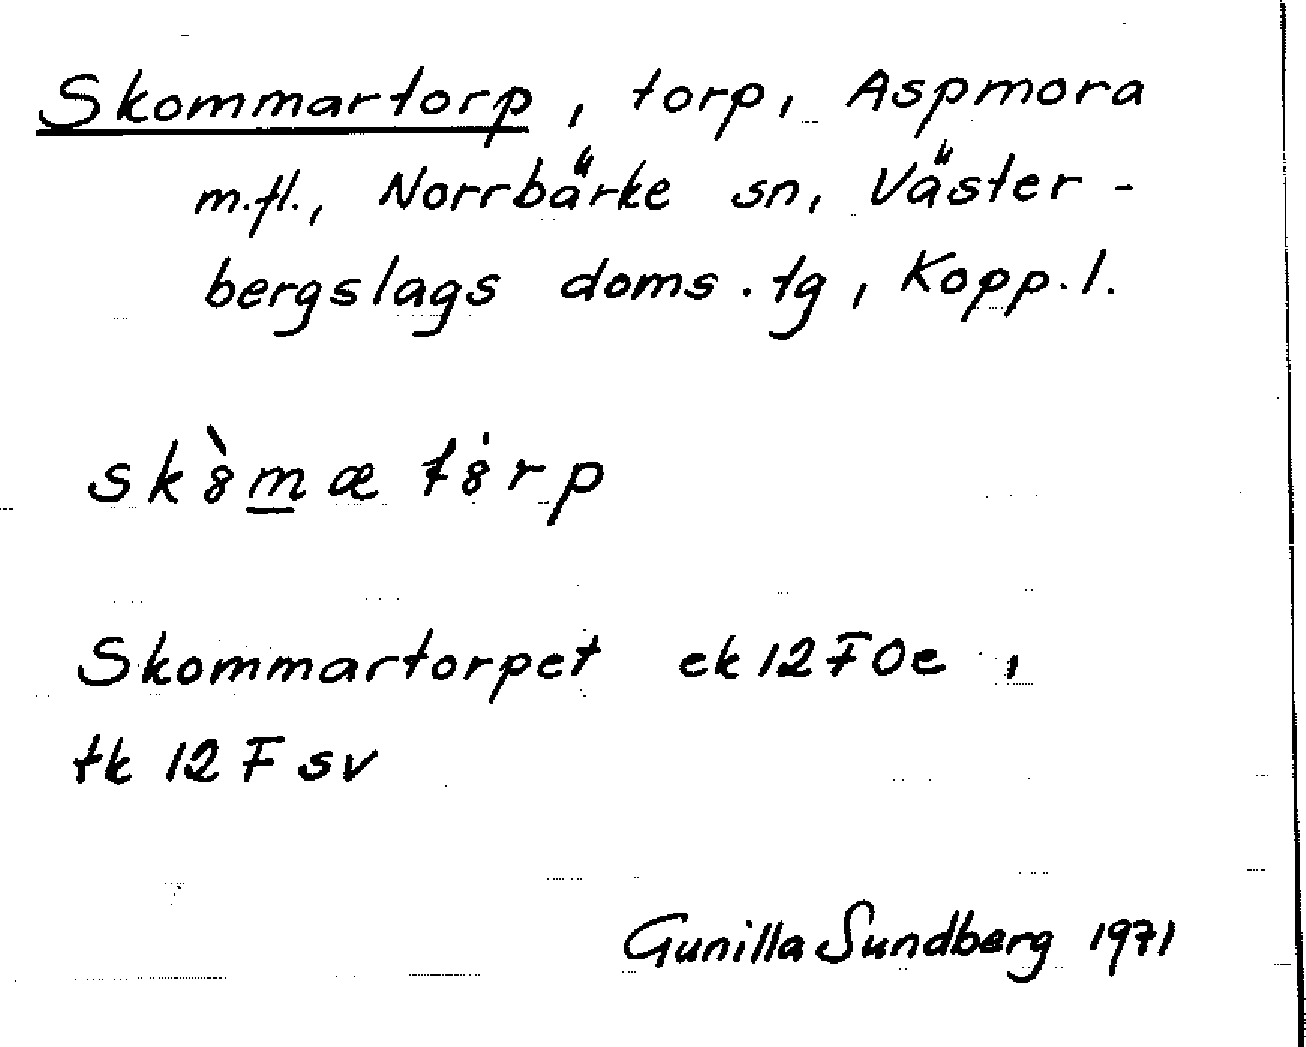 Skommartorp, torp, Aspmora
m.fl., Norrbärke sn, Väster-
bergslags doms.tg, Kopp.l.
sk8̀m̲æ t8́rp
Skommartorpet ek 12F0e,
tk 12F sv
Gunilla Sundberg 1971